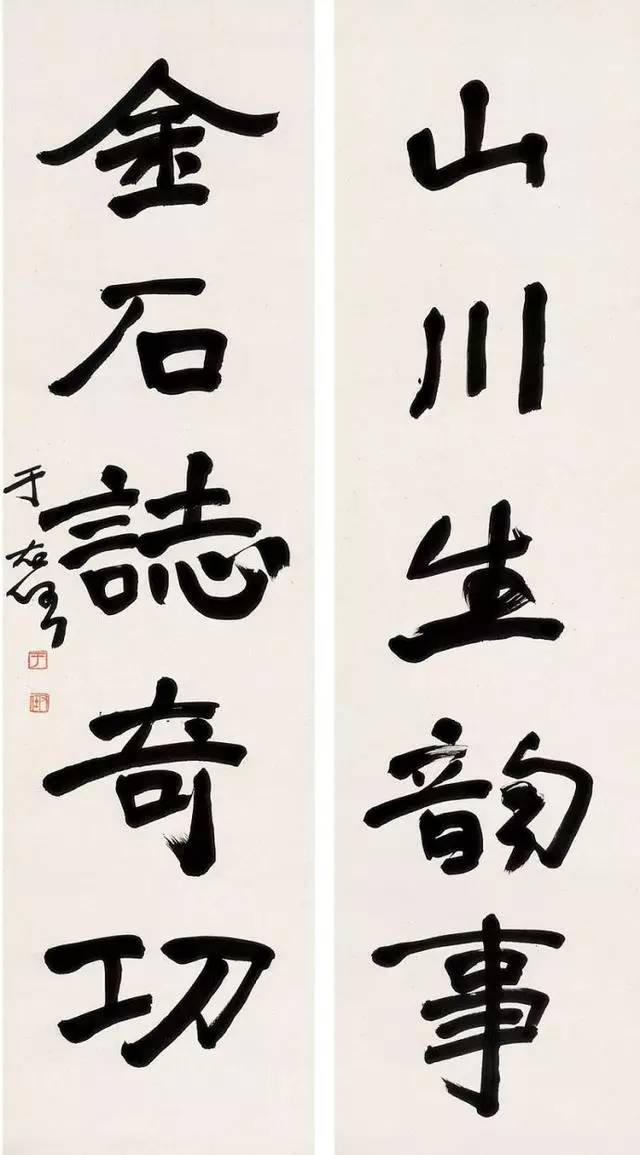 山川生韵事
金石誌奇功
于右任